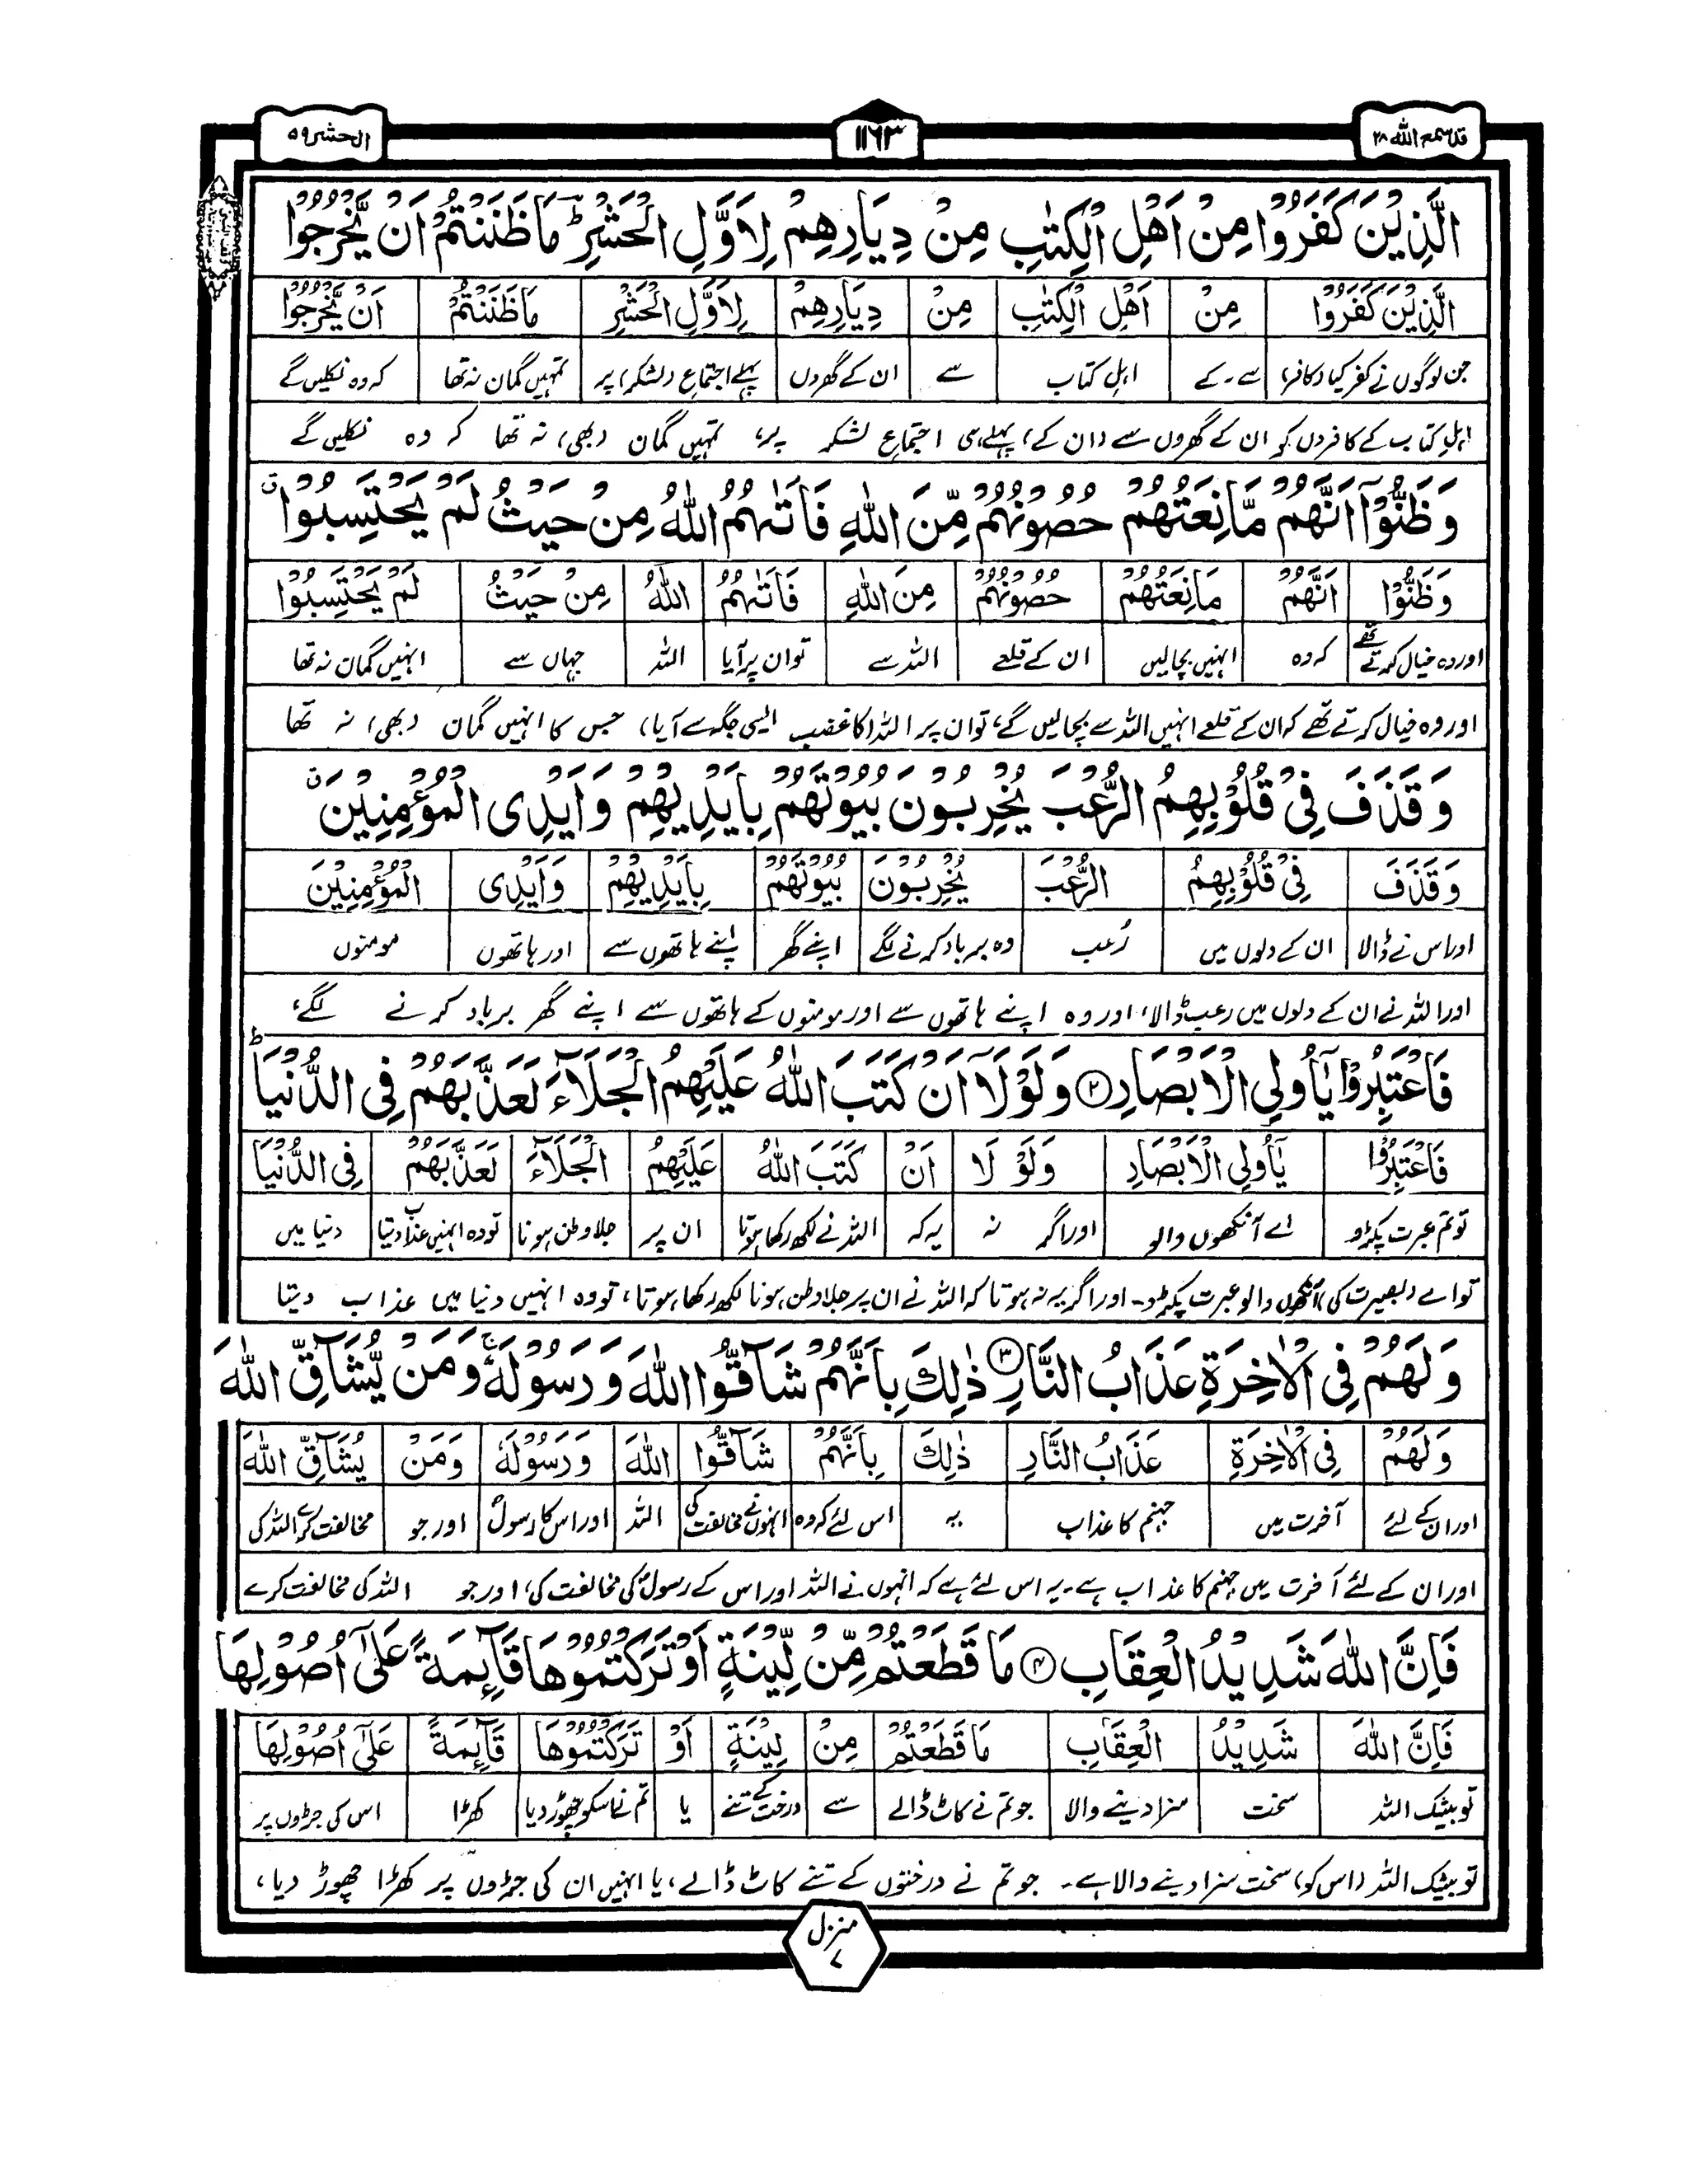 قد سمع الله ۲۸
۱۱۶۳
الحشر ۵۹
الَّذِيْنَ كَفَرُوْا مِنْ اَهْلِ الْكِتٰبِ مِنْ دِيَارِهِمْ لِاَوَّلِ الْحَشْرِ ؕ مَا ظَنَنْتُمْ اَنْ يَّخْرُجُوْا
الَّذِيْنَ كَفَرُوْا مِنْ اَهْلِ الْكِتٰبِ مِنْ دِيَارِهِمْ لِاَوَّلِ الْحَشْرِ مَا ظَنَنْتُمْ اَنْ يَّخْرُجُوْا
جن لوگوں نے کفر کیا (کافر) سے ۔ کے اہلِ کتاب سے ان کے گھروں پہلے اجتماعِ (لشکر) پر تمہیں گمان نہ تھا کہ وہ نکلیں گے
اہلِ کتاب کے کافروں کو ان کے گھروں سے (ان کے) پہلے ہی اجتماعِ لشکر پر، تمہیں گمان (بھی) نہ تھا کہ وہ نکلیں گے
وَظَنُّوْۤا اَنَّهُمْ مَّانِعَتُهُمْ حُصُوْنُهُمْ مِّنَ اللّٰهِ فَاَتٰىهُمُ اللّٰهُ مِنْ حَيْثُ لَمْ يَحْتَسِبُوْا ۗ
وَظَنُّوْۤا اَنَّهُمْ مَانِعَتُهُمْ حُصُوْنُهُمْ مِنَ اللّٰهِ فَاَتٰىهُمُ اللّٰهُ مِنْ حَيْثُ لَمْ يَحْتَسِبُوْا
اور وہ خیال کرتے تھے کہ وہ انہیں بچالیں ان کے قلعے اللہ سے تو ان پر آیا اللہ جہاں سے انہیں گمان نہ تھا
اور وہ خیال کرتے تھے کہ ان کے قلعے انہیں اللہ سے بچالیں گے، تو ان پر اللہ (کا غضب ایسی جگہ سے آیا) جس کا انہیں گمان (بھی) نہ تھا
وَقَذَفَ فِيْ قُلُوْبِهِمُ الرُّعْبَ يُخْرِبُوْنَ بُيُوْتَهُمْ بِاَيْدِيْهِمْ وَاَيْدِى الْمُؤْمِنِيْنَ ۗ
وَقَذَفَ فِيْ قُلُوْبِهِمُ الرُّعْبَ يُخْرِبُوْنَ بُيُوْتَهُمْ بِاَيْدِيْهِمْ وَاَيْدِى الْمُؤْمِنِيْنَ
اور اس نے ڈالا ان کے دلوں میں رُعب وہ برباد کرنے لگے اپنے گھر اپنے ہاتھوں سے اور ہاتھوں مومنوں
اور اللہ نے ان کے دلوں میں رعب ڈالا، اور وہ اپنے ہاتھوں سے اور مومنوں کے ہاتھوں سے اپنے گھر برباد کرنے لگے،
فَاعْتَبِرُوْا يٰۤاُولِى الْاَبْصَارِ ۲ وَلَوْلَاۤ اَنْ كَتَبَ اللّٰهُ عَلَيْهِمُ الْجَلَآءَ لَعَذَّبَهُمْ فِى الدُّنْيَا ؕ
فَاعْتَبِرُوْا يٰۤاُولِى الْاَبْصَارِ وَلَوْ لَا اَنْ كَتَبَ اللّٰهُ عَلَيْهِمُ الْجَلَآءَ لَعَذَّبَهُمْ فِى الدُّنْيَا
تو تم عبرت پکڑو اے آنکھوں والو اور اگر نہ یہ کہ اللہ نے لکھ رکھا ہوتا ان پر جلا وطن ہونا تو وہ انہیں عذاب دیتا دنیا میں
تو اے (بصیرت کی) آنکھوں والو عبرت پکڑو۔ اور اگر یہ نہ ہوتا کہ اللہ نے ان پر جلا وطن ہونا لکھ رکھا ہوتا، تو وہ انہیں دنیا میں عذاب دیتا
وَلَهُمْ فِى الْاٰخِرَةِ عَذَابُ النَّارِ ۳ ذٰلِكَ بِاَنَّهُمْ شَآقُّوا اللّٰهَ وَرَسُوْلَهٗ ۚ وَمَنْ يُّشَآقِّ اللّٰهَ
وَلَهُمْ فِى الْاٰخِرَةِ عَذَابُ النَّارِ ذٰلِكَ بِاَنَّهُمْ شَآقُّوا اللّٰهَ وَرَسُوْلَهٗ وَمَنْ يُشَآقِّ اللّٰهَ
اور ان کے لئے آخرت میں جہنم کا عذاب یہ اس لئے کہ وہ انہوں نے مخالفت کی اللہ اور اس کا رسولؐ اور جو مخالفت کرے اللہ کی
اور ان کے لئے آخرت میں جہنم کا عذاب ہے۔ یہ اس لئے ہے کہ انہوں نے اللہ اور اس کے رسولؐ کی مخالفت کی، اور جو اللہ کی مخالفت کرے
فَاِنَّ اللّٰهَ شَدِيْدُ الْعِقَابِ ۴ مَا قَطَعْتُمْ مِّنْ لِّيْنَةٍ اَوْ تَرَكْتُمُوْهَا قَآئِمَةً عَلٰٓى اُصُوْلِهَا
فَاِنَّ اللّٰهَ شَدِيْدُ الْعِقَابِ مَا قَطَعْتُمْ مِنْ لِيْنَةٍ اَوْ تَرَكْتُمُوْهَا قَآئِمَةً عَلٰٓى اُصُوْلِهَا
تو بیشک اللہ سخت سزا دینے والا جو تم نے کاٹ ڈالے سے درخت کے تنے یا تم نے اسکو چھوڑ دیا کھڑا اس کی جڑوں پر
تو بیشک اللہ (اس کو) سخت سزا دینے والا ہے۔ جو تم نے درختوں کے تنے کاٹ ڈالے، یا انہیں ان کی جڑوں پر کھڑا چھوڑ دیا،
منزل ۷